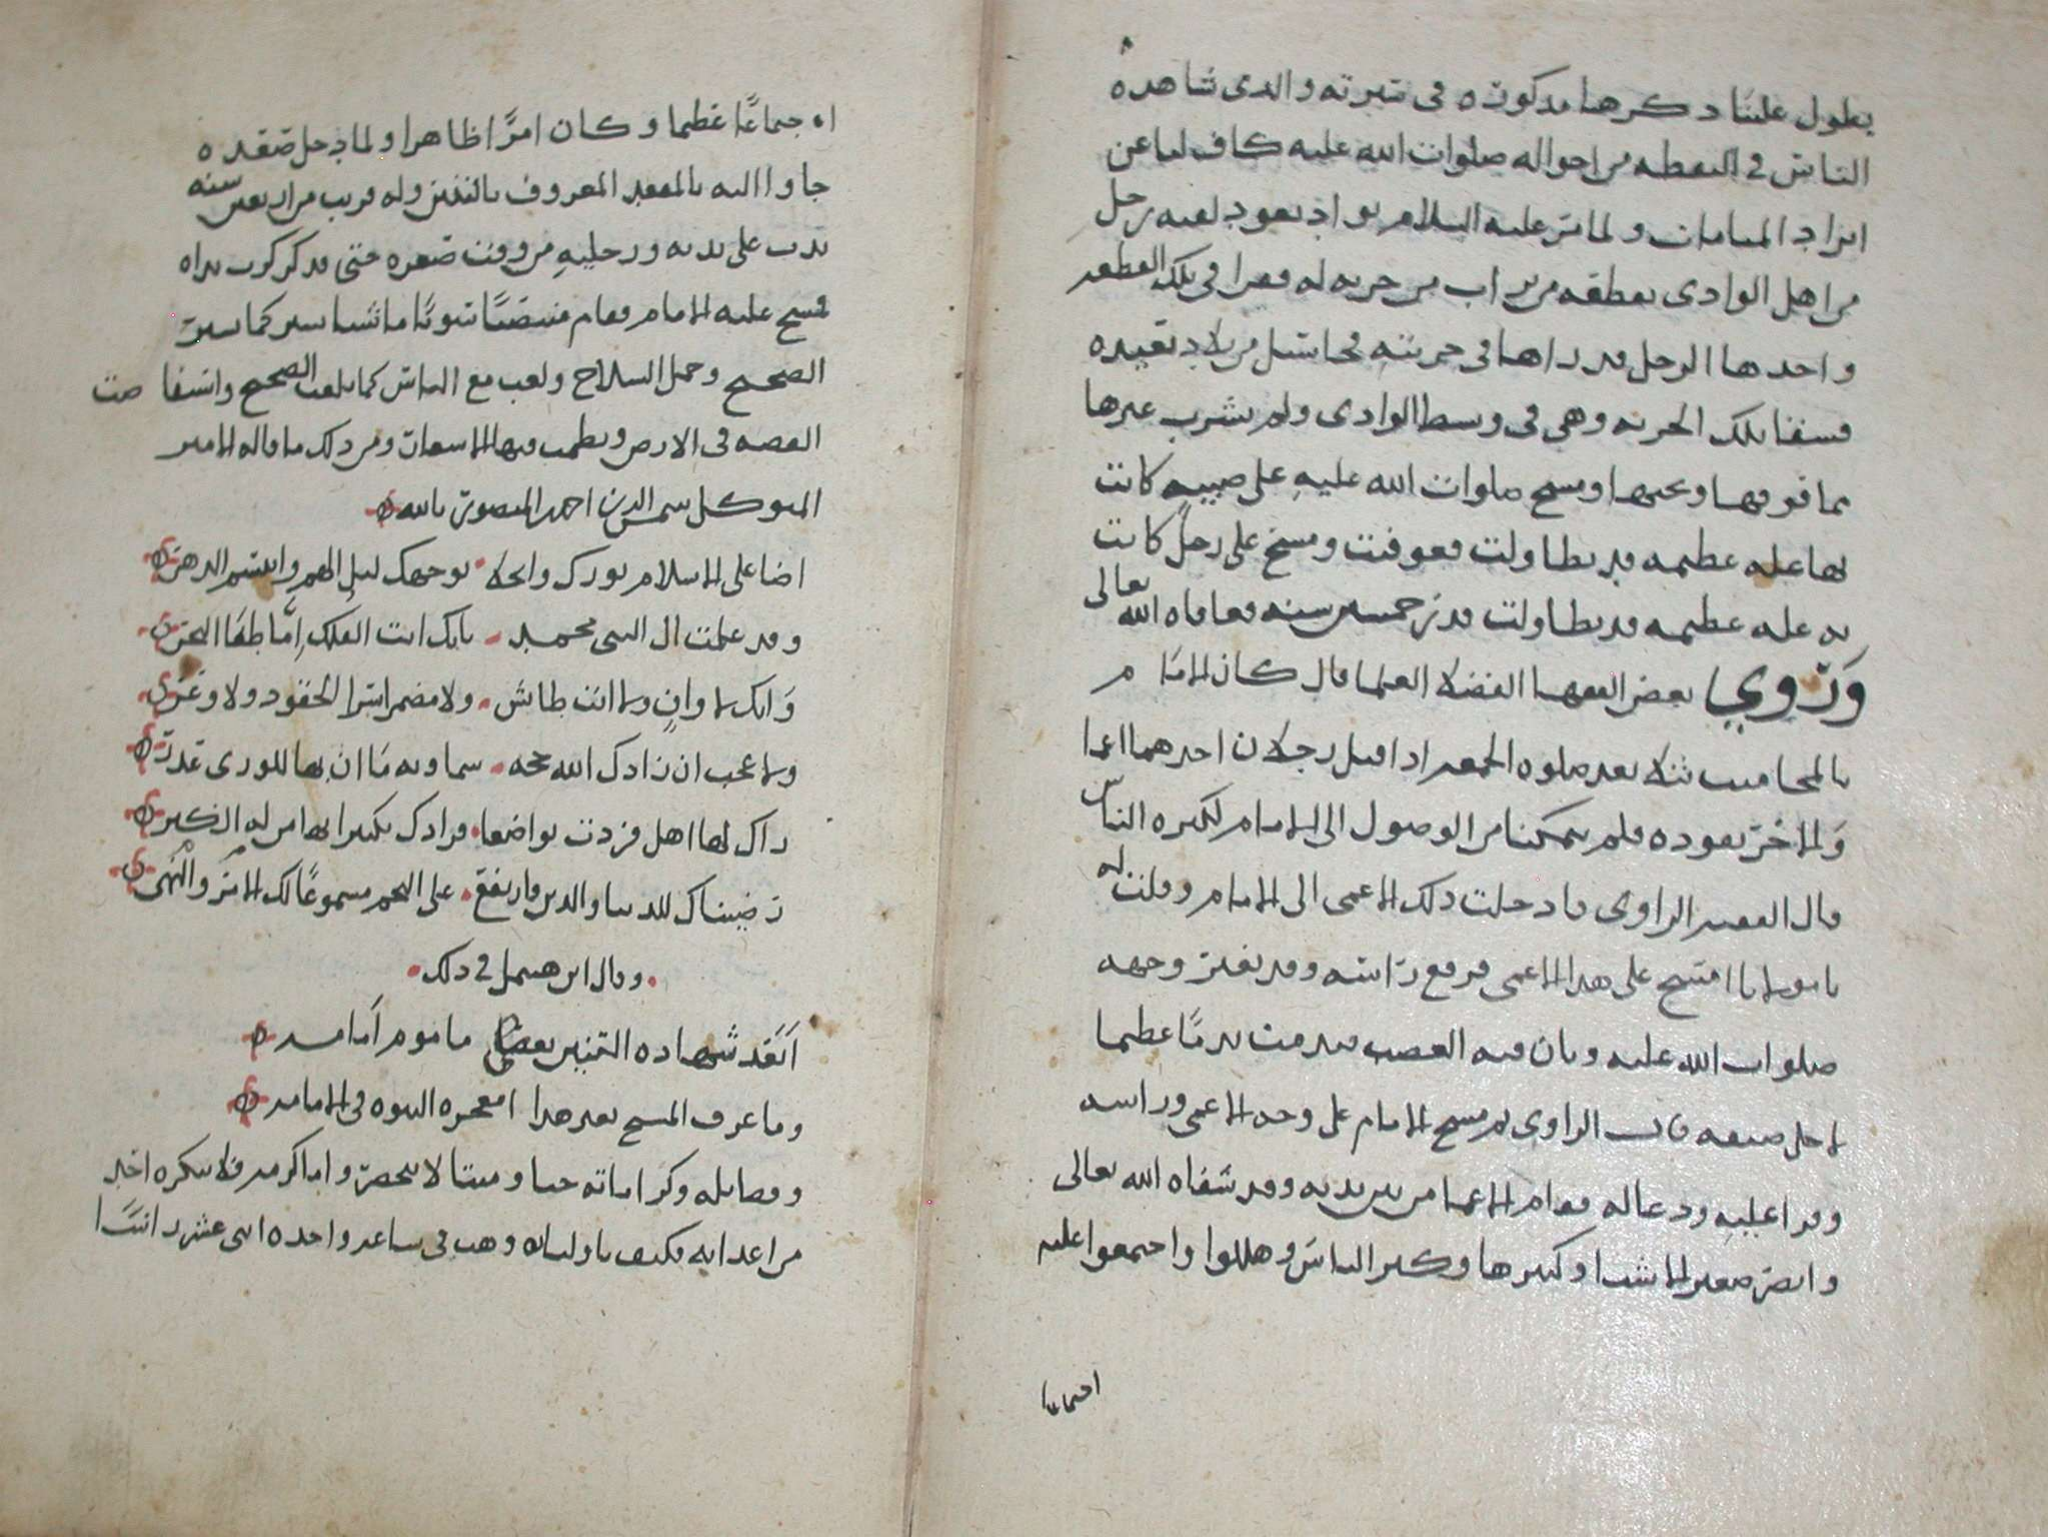 يطول علينا ذكرها مذكورة في سيرته والذي شاهده
الناس في اليقظه من احواله صلوات الله عليه كاف لنا عن
ايراد المنامات ولما سر عليه السلام بواد يعود لقيه رجل
من اهل الوادي بقطعه من تراب من حربه له فقرا في تلك القطعه
واخذها الرجل فذراها في حربته فجا سيل من بلاد بعيده
فسقا تلك الحربه وهي في وسط الوادي ولم يشرب غيرها
مما فوقها وتحتها ومسح صلوات الله عليه على صبيه كانت
بها عله عظيمه قد تطاولت فعوفيت ومسح على رجل كانت
به عله عظيمه قد تطاولت قدر خمسين سنه فعافاه الله تعالى
وروي بعض الفقها الفضلا العلما قال كان الامام
بالمحاميب بثلا بعد صلوة الجمعه اذ اقبل رجلان احدهما اعما
والاخر يعوده فلم يتمكنا من الوصول الى الامام لكثره الناس
قال الفقيه الراوي فادخلت ذلك الاعمى الى الامام وقلت له
يا مولانا امسح على هذا الاعمى فرفع راسه وقد تغير وجهه
صلوات الله عليه وبان فيه الغضب فندمت ندما عظيما
لاجل صنعه قال الراوي ثم مسح الامام على وجه الاعمى وراسه
وقرا عليه ودعا له فقام الاعما من بين يديه وقد شفاه الله تعالى
وابصر صغير الاشيا وكبيرها وكبر الناس وهللوا واجتمعوا عليه
اجتماعا
اجتماعًا عظيما وكان امرًا ظاهرا ولما دخل صعده
جاوا اليه بالمقعد المعروف وله قريب من اربعين سنه
يدب على يديه ورجليه من وقت صغره حتى قد بداه
فمسح عليه الامام فقام منتصبًا سويًا ماشيا يسير كما يسير
الصحيح وحمل السلاح ولعب مع الناس كما يلعب الصحيح واستفاضت
القصه في الارض ونظمت فيها الاشعار ومن ذلك ما قاله الامير
المتوكل شمس الدين احمد المنصور بالله
اضا على الاسلام نورك وانجلا بوجهك ليل الهم وابتسم الدهر
وقد علمت ال النبي محمد بانك انت الفلك إمَّا طغَا البحر
وَانك لا وانٍ ولا انت طايش ولا مضمر اسرا الحقود ولا وغر
ولا عجب ان زادك الله حجه سماويه مَا ان بها للورى قدر
راك لها اهل فزدت تواضعا فزادك تكبيرا بها من له الكبر
رضيناك للدنيا وللدين فارتفع على النجم مسموعًا لك الامر والنهي
وقال ابن هتيمل في ذلك
اَبَعْد شهاده التمييز بعضا ما موم اَمامه
وما عرف المسح بعد هذا امعجزه النبوه في الامامه
وفضايله وكراماته حيا وميتا لا تنحصر واما كرمه فلا ينكره احد
من اعدايه فكيف باوليايه وهب في ساعه واحده اثني عشر راسًا